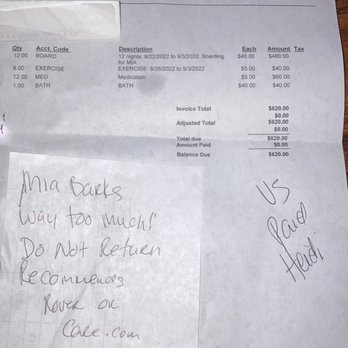 Qty Acct. Code Description Each Amount Tax
12.00 BOARD 12 nights: 8/22/2022 to 9/3/2022: Boarding for MIA $40.00 $480.00
8.00 EXERCISE EXERCISE: 8/26/2022 to 9/3/2022 $5.00 $40.00
12.00 MED Medication $5.00 $60.00
1.00 BATH BATH $40.00 $40.00
Invoice Total $620.00
$0.00
Adjusted Total $620.00
$0.00
Total due $620.00
Amount Paid $0.00
Balance Due $620.00
Mia Barks
Way too much!
Do Not Return
Recommends
Rover or
Care.com
VS
Paws
Heidi